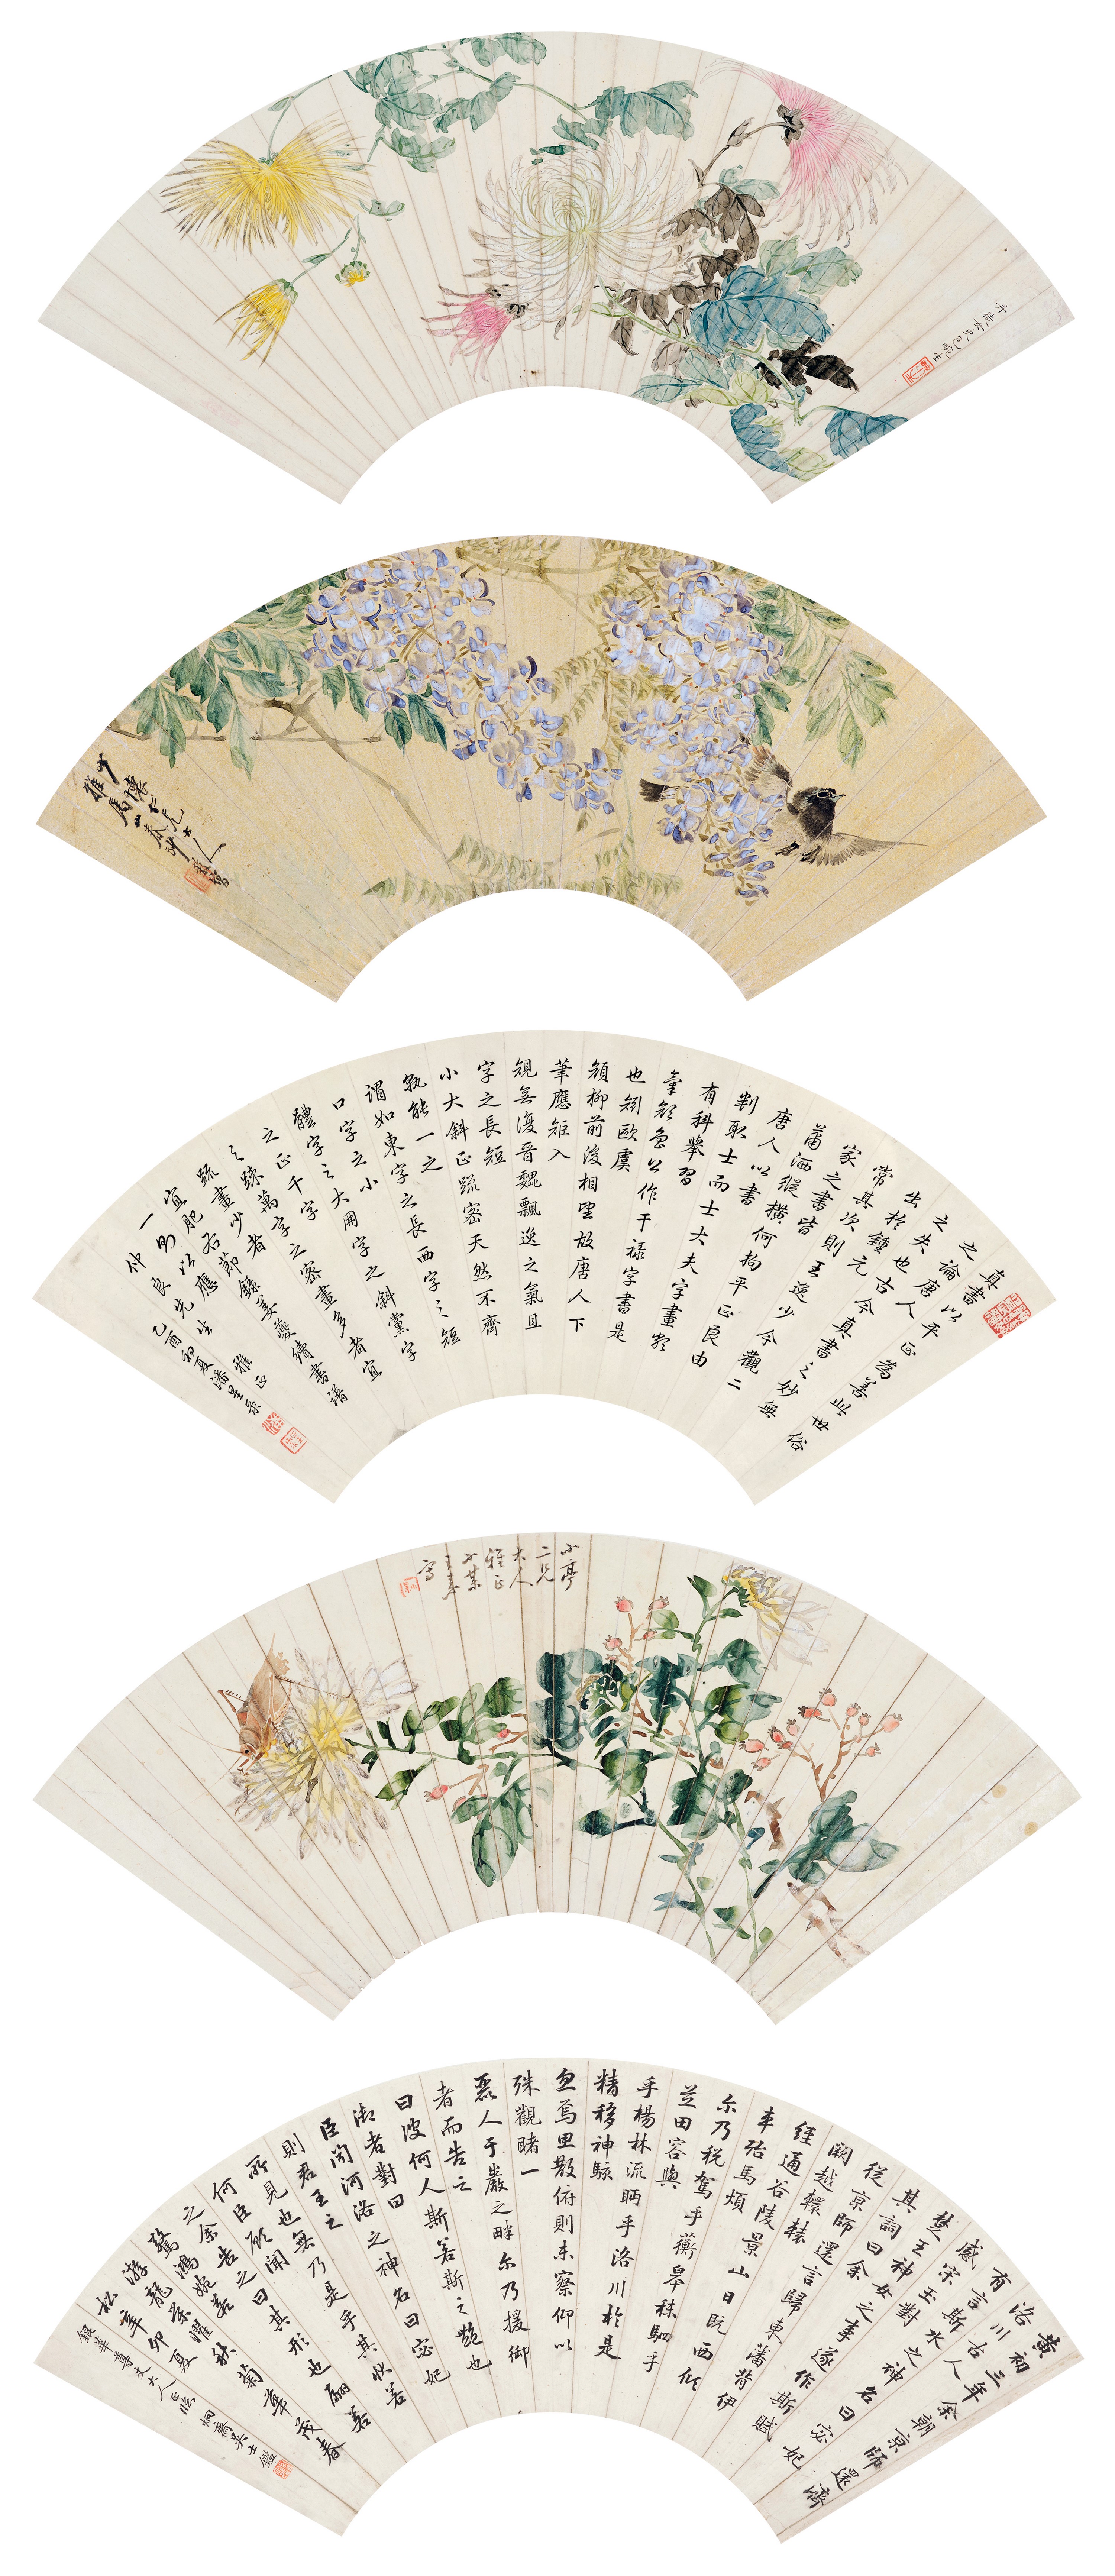 丹徒女史包
叶懷仁兄大人
雅屬
真書以平正為善此世俗
之論唐人
之失也古今真書之妙無
出於鍾元
常其次則王逸少今觀二
家之書皆
蕭洒縱橫何拘平正良由
唐人以書
判取士而士大夫字畫類
有科舉習
氣顏魯公作干祿字書是
也矧歐虞
顏柳前後相望故唐人下
筆應矩入
規無復晉魏飄逸之氣且
字之長短
小大斜正疏密天然不齊
孰能一之
謂如東字之長西字之短
口字之小
體字之大朋字之斜黨字
之正千字
之疎萬字之密畫多者宜
疏畫少者
宜肥 節錄姜夔續書譜
一助以應
仲良先生 雅正
乙酉初夏潘
小亭
二兄
大人
雅正
寫
黃初三年余朝京師還濟
洛川古人
有言斯水之神名曰宓妃
感宋玉對
楚王神女之事遂作斯賦
其詞曰余
從京師還言歸東藩背伊
闕越轘轅
經通谷陵景山日既西傾
車殆馬煩
尔乃稅駕乎蘅皋秣駟乎
芝田容與
乎楊林流眄乎洛川於是
精移神駭
忽焉思散俯則未察仰以
殊觀睹一
麗人于巖之畔尔乃援御
者而告之
曰彼何人斯若斯之艷也
御者對曰
臣聞河洛之神名曰宓妃
則君王之
所見也無乃是乎其狀若
何臣願聞
之余告之曰其形也翩若
驚鴻婉若
游龍榮曜秋菊華茂春
松 辛卯夏
銀華尊丈大人正腕 絅齋吳士鑑